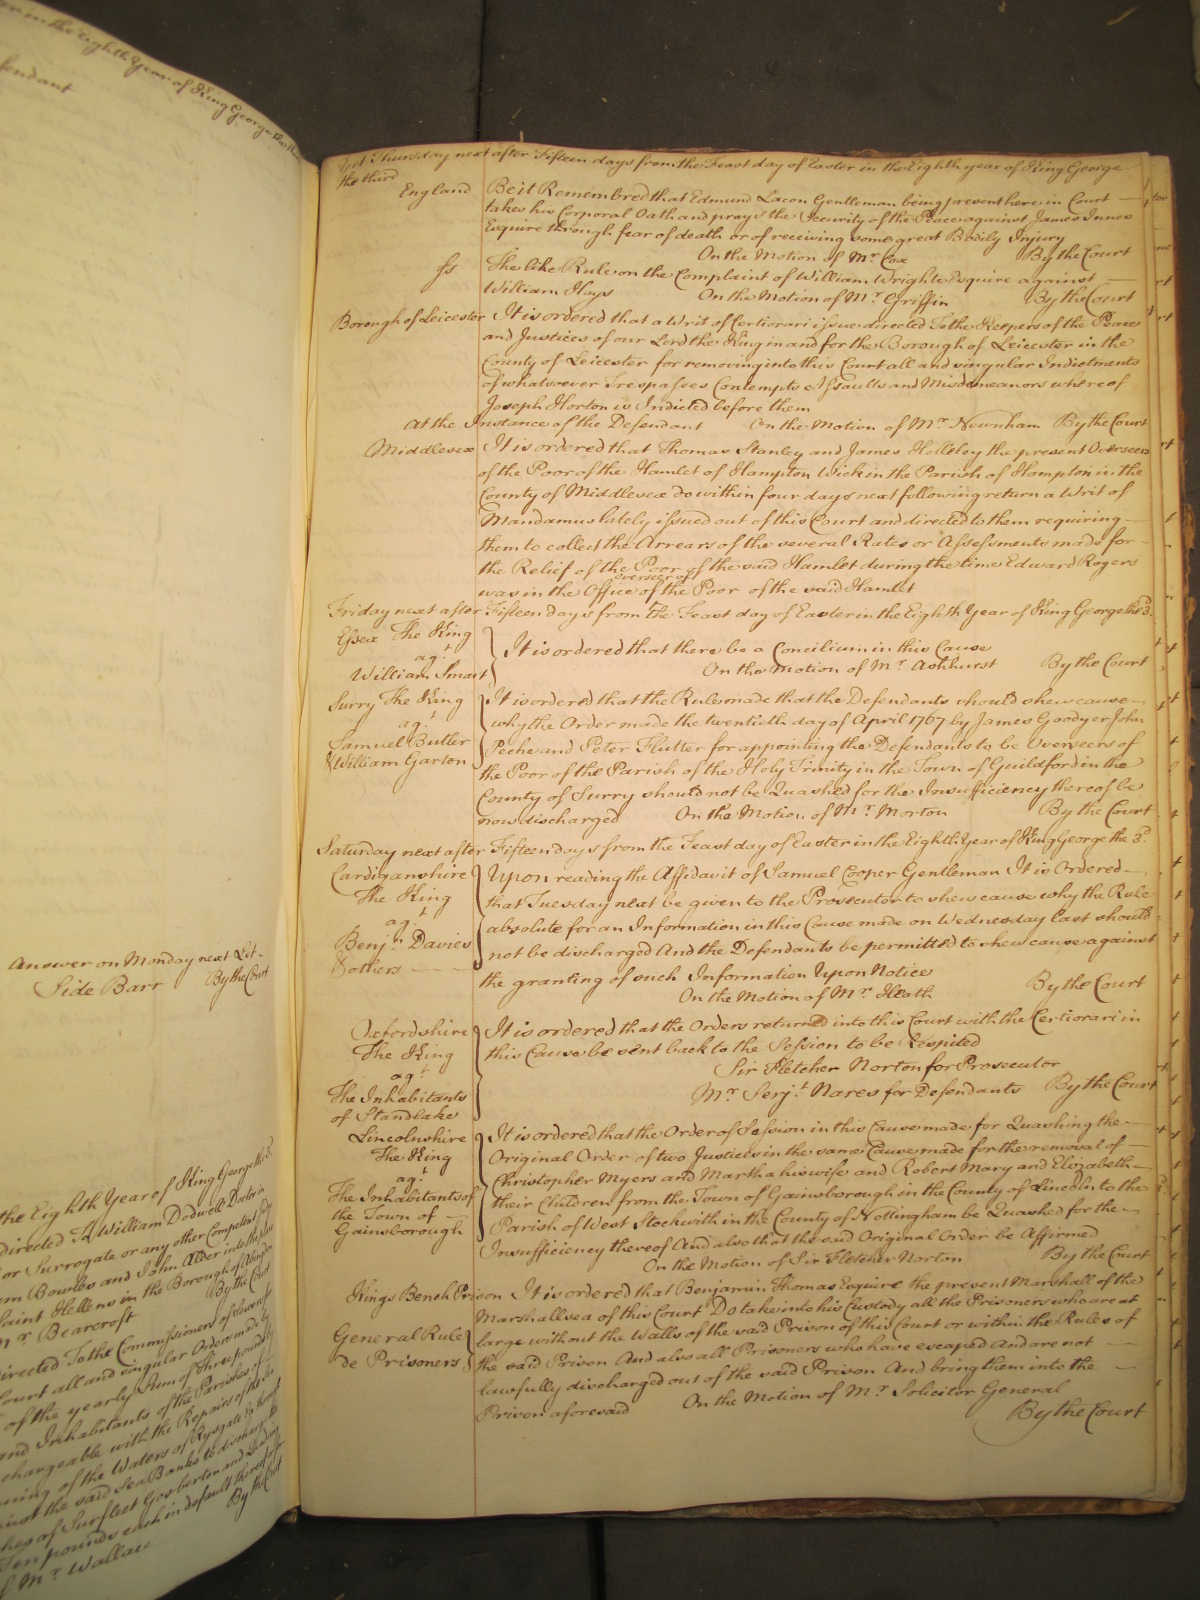 in the Eighth Year of King George the
fendant
Answer on Monday next Let
Side Barr By the Court
the Eighth Year of King George the 3.
directed To William Dodwell Doctor in
or Surrogate or any other Competent
Bowles and John Alder into the
Saint Hellens in the Borough of
By the Court
Mr. Bearcroft
directed To the Commissioners of
Court all and singular Orders made by
of the yearly Sum of three pounds
and Inhabitants of the Parishes of
chargeable with the Repairs of the
of the Waters of
the said Sea Banks to discharge the
of Surfleet Gosberton and
Ten pounds each in default thereof
By the Court
Mr. Wallace
Yet Thursday next after Fifteen days from the Feast day of Easter in the Eighth year of King George
the third
England Be it Remembred that Edmund Lacon Gentleman being present here in Court
takes his Corporal Oath and prays the Security of the Peace against James Innes
Esquire through fear of death or of receiving some great Bodily Injury
On the Motion of Mr. Cox By the Court
ss The like Rule on the Complaint of William Wrighte Esquire against
William Hays On the Motion of Mr. Griffin By the Court
Borough of Leicester It is ordered that a Writ of Certiorari issue directed To the Keepers of the Peace
and Justices of our Lord the King in and for the Borough of Leicester in the
County of Leicester for removing into this Court all and singular Indictments
of whatsoever Trespasses Contempts Assaults and Misdemeanors whereof
Joseph Horton is Indicted before them
At the Instance of the Defendant On the Motion of Mr. Newnham By the Court
Middlesex It is ordered that Thomas Stanley and James the present Overseers
of the Poor of the Hamlet of Hampton Wick in the Parish of Hampton in the
County of Middlesex do within four days next following return a Writ of
Mandamus lately issued out of this Court and directed to them requiring
them to collect the Arrears of the several Rates or Assessments made for
the Relief of the Poor of the said Hamlet during the time Edward Rogers
was in the Office of overseer of the Poor of the said Hamlet
Friday next after Fifteen days from the Feast day of Easter in the Eighth Year of King George the 3d.
Essex The King
agt. It is ordered that there be a Concilium in this Cause
William Smart On the Motion of Mr. Ashhurst By the Court
Surry The King It is ordered that the Rule made that the Defendants should shew cause
agt. why the Order made the twentieth day of April 1767 by James Goodyer John
Samuel Butler Peche and Peter Flutter for appointing the Defendants to be Overseers of
& William Garton the Poor of the Parish of the Holy Trinity in the Town of Guildford in the
County of Surry should not be Quashed for the Insufficiency thereof be
now discharged On the Motion of Mr. Morton By the Court
Saturday next after Fifteen days from the Feast day of Easter in the Eighth Year of King George the 3d
Cardiganshire Upon reading the Affidavit of Samuel Cooper Gentleman It is Ordered
The King that Tuesday next be given to the Prosecutor to shew cause why the Rule
agt. absolute for an Information in this Cause made on Wednesday last should
Benjn. Davies not be discharged And the Defendants be permitted to shew cause against
& others the granting of such Information Upon Notice
On the Motion of Mr. Heath By the Court
Oxfordshire It is ordered that the Orders returned into this Court with the Certiorari in
The King this Cause be sent back to the Session to be Respited
agt. Sir Fletcher Norton for Prosecutor
The Inhabitants Mr. Serjt. Nares for Defendants By the Court
of Standlake
Lincolnshire It is ordered that the Order of Session in this Cause made for Quashing the
The King Original Order of two Justices in the same Cause made for the removal of
agt. Christopher Myers and Martha his wife and Robert Mary and Elizabeth
The Inhabitants of their Children from the Town of Gainsborough in the County of Lincoln to the
the Town of Parish of West Stockwith in the County of Nottingham be Quashed for the
Gainsborough Insufficiency thereof And also that the said Original Order be Affirmed
On the Motion of Sir Fletcher Norton By the Court
Kings Bench Prison It is ordered that Benjamin Thomas Esquire the present Marshall of the
Marshallsea of this Court Do take into his Custody all the Prisoners who are at
General Rule large without the Walls of the said Prison of this Court or within the Rules of
de Prisoners the said Prison And also all Prisoners who have escaped And are not
lawfully discharged out of the said Prison And bring them into the
Prison aforesaid On the Motion of Mr. Solicitor General
By the Court